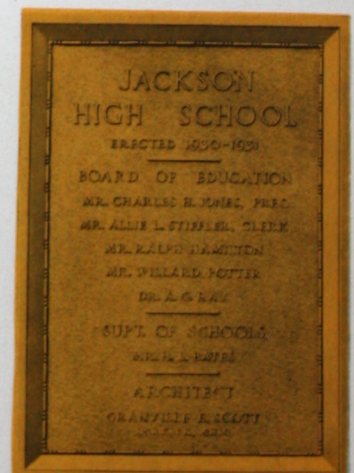 JACKSON
HIGH SCHOOL
ERECTED 1930-1931
BOARD OF EDUCATION
MR. CHARLES H. JONES, PRES.
MR. ALLIE L. STIFFLER, CLERK
MR. RALPH HAMILTON
MR. WILLARD POTTER
DR. A. G. RAY
SUPT. OF SCHOOLS
MR. H. L.
ARCHITECT
GRANVILLE E. SCOTT